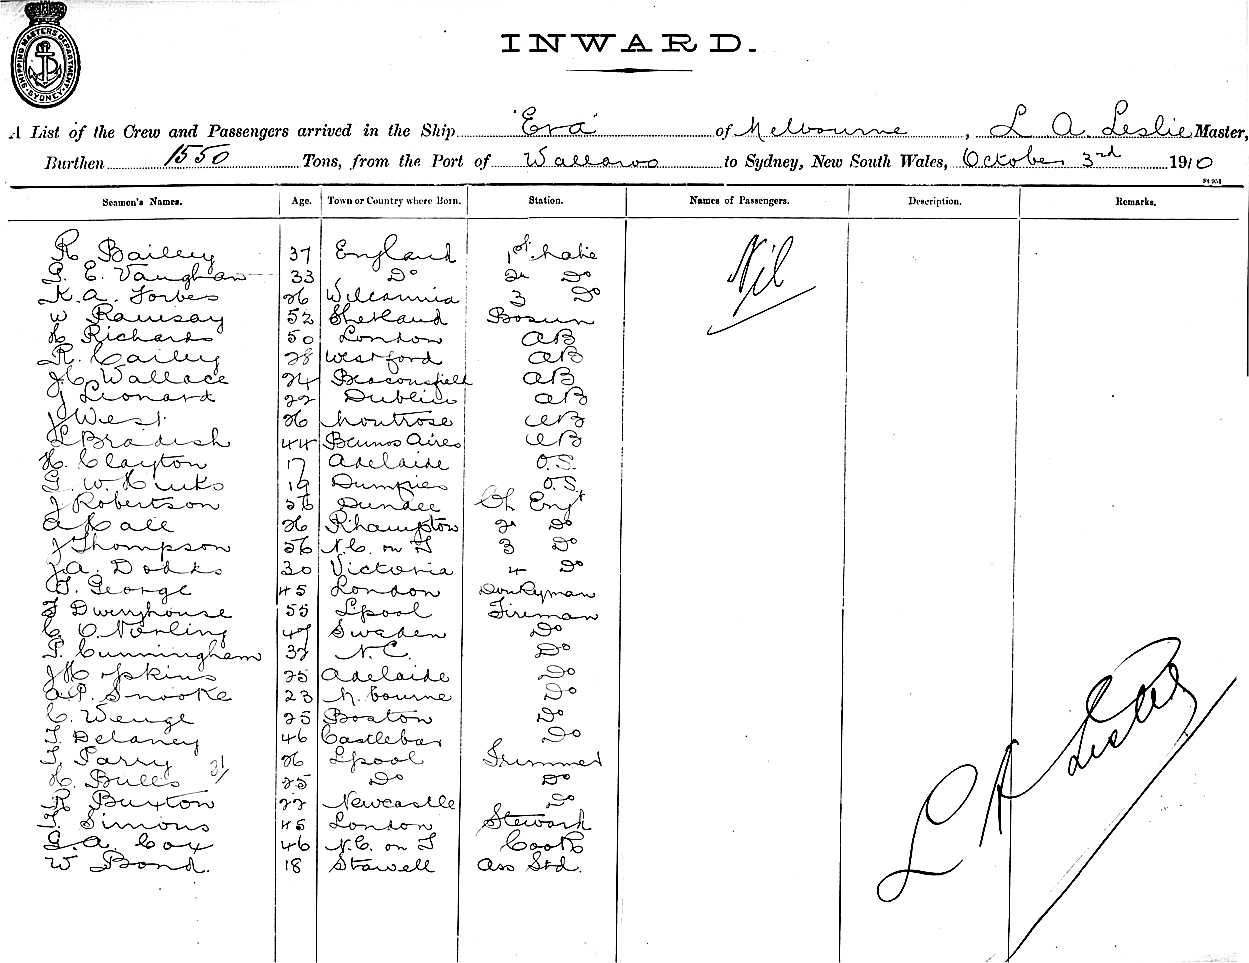 SHIPPING MASTERS DEPARTMENT SYDNEY
INWARD.
A List of the Crew and Passengers arrived in the Ship "Era" of Melbourne, L A Leslie Master,
Burthen 1550 Tons, from the Port of Wallaroo to Sydney, New South Wales, October 3rd 1910
Seamen's Names. Age. Town or Country where Born. Station. Names of Passengers. Description. Remarks.
R Bailey 37 England 1st Mate Nil
G. E. Vaughan 33 Do 2 Do
K. A. Forbes 26 Wilcannia 3 Do
W Ramsay 52 Shetland Bosun
H Richards 50 London AB
R. Cailey 28 Westford AB
J C Wallace 24 Beaconsfield AB
J Leonard 22 Dublin AB
J West 26 Montrose AB
L Bradish 44 Buenos Aires AB
H. Clayton 17 Adelaide O.S.
G. W. Hinks 19 Dumfries O.S.
J Robertson 56 Dundee Ch Engr
A Cale 26 Rhampton 2 Do
J Thompson 56 N.C. on T 3 Do
J. A. Dodds 30 Victoria 4 Do
G. George 45 London Donkyman
T Dwerryhouse 55 Lpool Fireman
C. O. Norling 47 Sweden Do
P. Cunningham 37 N.C. Do
J Hopkins 25 Adelaide Do
A. P. Snooke 23 M. bourne Do
C. Wenge 25 Boston Do
T. Delaney 46 Castlebar Do
T. Parry 26 Lpool Trimmer
H. Bulls 25 Do Do
R Buxton 22 Newcastle Do
T. Simons 45 London Steward
G. A. Cox 46 N.C. on T Cook
W Bond. 18 Stawell Ass Std.
L A Leslie